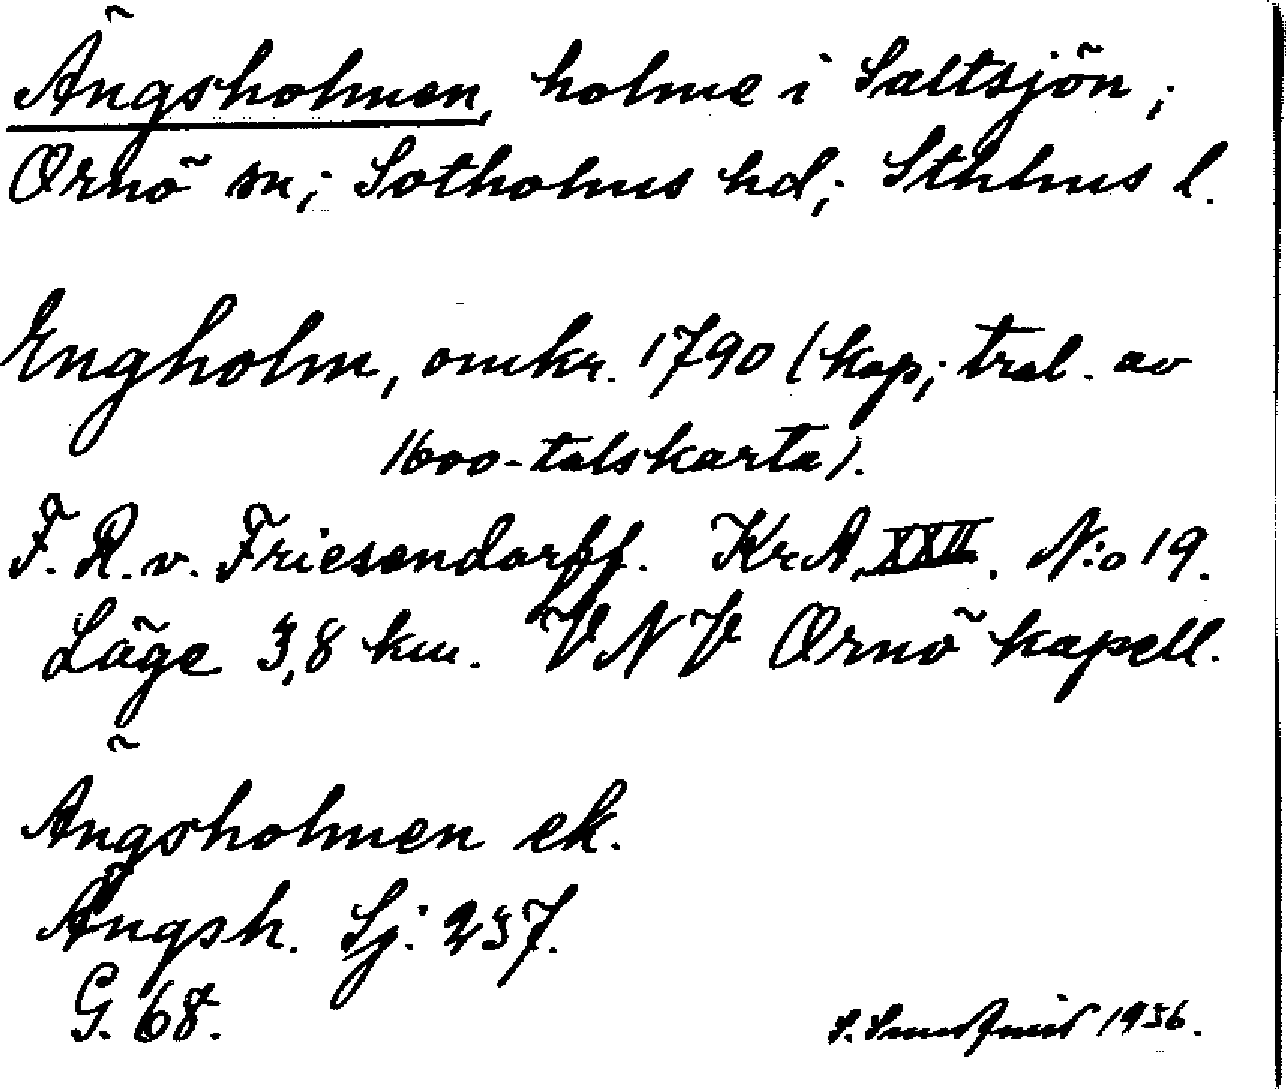 Ängsholmen, holme i Saltsjön;
Ornö sn; Sotholms hd; Sthlms l.
Engholm, omkr. 1790 (kop; tral. av
1600-talskarta).
F. R. v. Friesendorff. KrA, XXII. N:o 19.
Läge 3,8 km. VNV Ornö kapell.
Ängsholmen ek.
Ängsh. Sj: 237.
G. 68.
S. 1936.